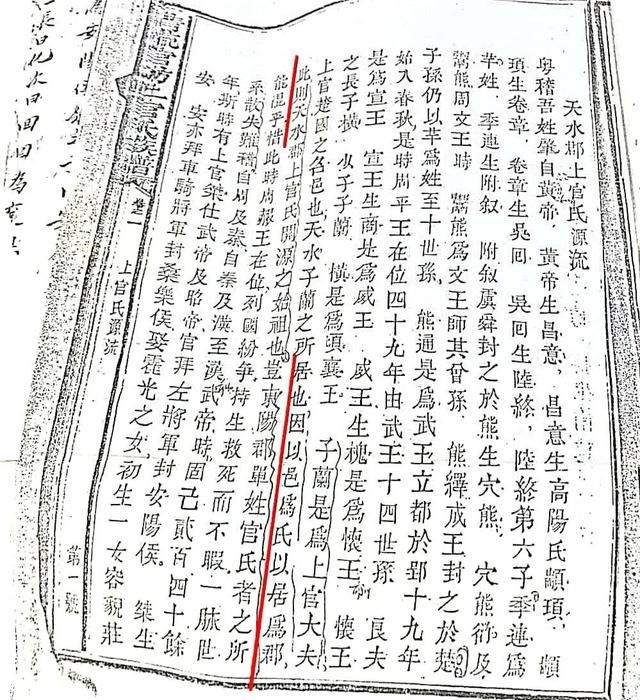 天水郡上官氏源流
粤稽吾姓肇自黄帝 黄帝生昌意 昌意生高陽氏顓頊 顓
頊生卷章 卷章生吳回 吳回生陸終 陸終第六子季連爲
芈姓 季連生附叙 附叙虞舜封之於熊生穴熊 穴熊衍及
鬻熊周文王時 鬻熊爲文王師其曾孫 熊繹成王封之於楚
子孫仍以芈爲姓至十世孫 熊通是爲武王立都於郢十九年
始入春秋是時周平王在位四十九年由武王十四世孫 良夫
是爲宣王 宣王生商是爲威王 威王生槐是爲懷王 懷王
之長子横 少子子蘭 横是爲頃襄王 子蘭是爲上官大夫
上官楚國之名邑也天水子蘭之所居也因以邑爲氏以居爲郡
此則天水郡上官氏開源之始祖也豈東陽郡單姓官氏者之所
能混乎惜此時周赧王在位列國紛爭持生救死而不暇一脉世
系散失難稱自周及秦自秦及漢至漢武帝時固己貳百四十餘
年斯時有上官桀仕武帝及昭帝官拜左將軍封安陽侯 桀生
安 安亦拜車騎將軍封桑樂侯娶霍光之女初生一女容貌莊
官氏族譜
卷一
上官氏源流
第一號